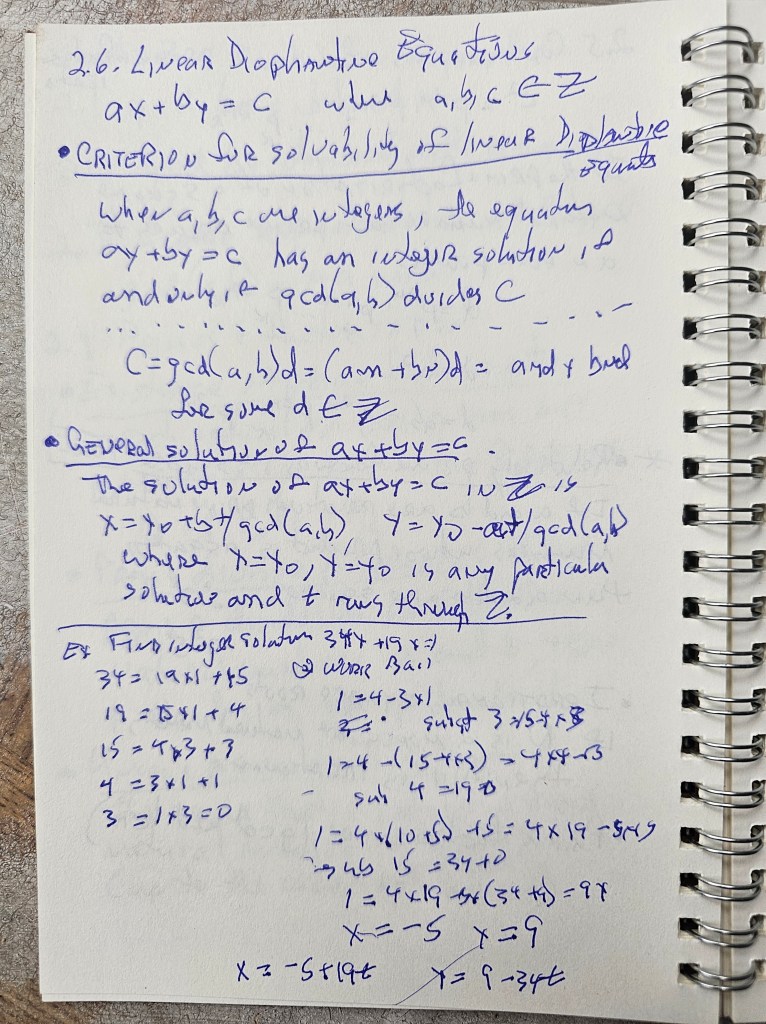 2.6. Linear Diophantine Equations
ax + by = c where a, b, c ∈ Z
• CRITERION for solvability of linear Diophantine
Equations
When a, b, c are integers, the equation
ay + by = c has an integer solution if
and only if gcd(a, b) divides C
C = gcd(a, b)d = (am + bn)d = amd + bnd
for some d ∈ Z
• General solution of ax + by = c.
The solution of ax + by = c in Z is
x = x0 + bt/gcd(a,b) y = y0 - at/gcd(a,b)
where x = x0, y = y0 is any particular
solution and t runs through Z.
Ex Find integer solution 34x + 19 x = 1
34 = 19 x 1 + 15
work Bac
19 = 15 x 1 + 4
1 = 4 - 3 x 1
subst 3 = 15 - 4 x 3
15 = 4 x 3 + 3
1 = 4 - (15 - 4 x 3) = 4 x 4 - 15
4 = 3 x 1 + 1
sub 4 = 19
3 = 1 x 3 = 0
15 = 4 x 19 - 5 x 15
sub 15 = 34 +
1 = 4 x 19 = 9 x
x = -5 x = 9
x = -5 + 19t x = 9 - 34t